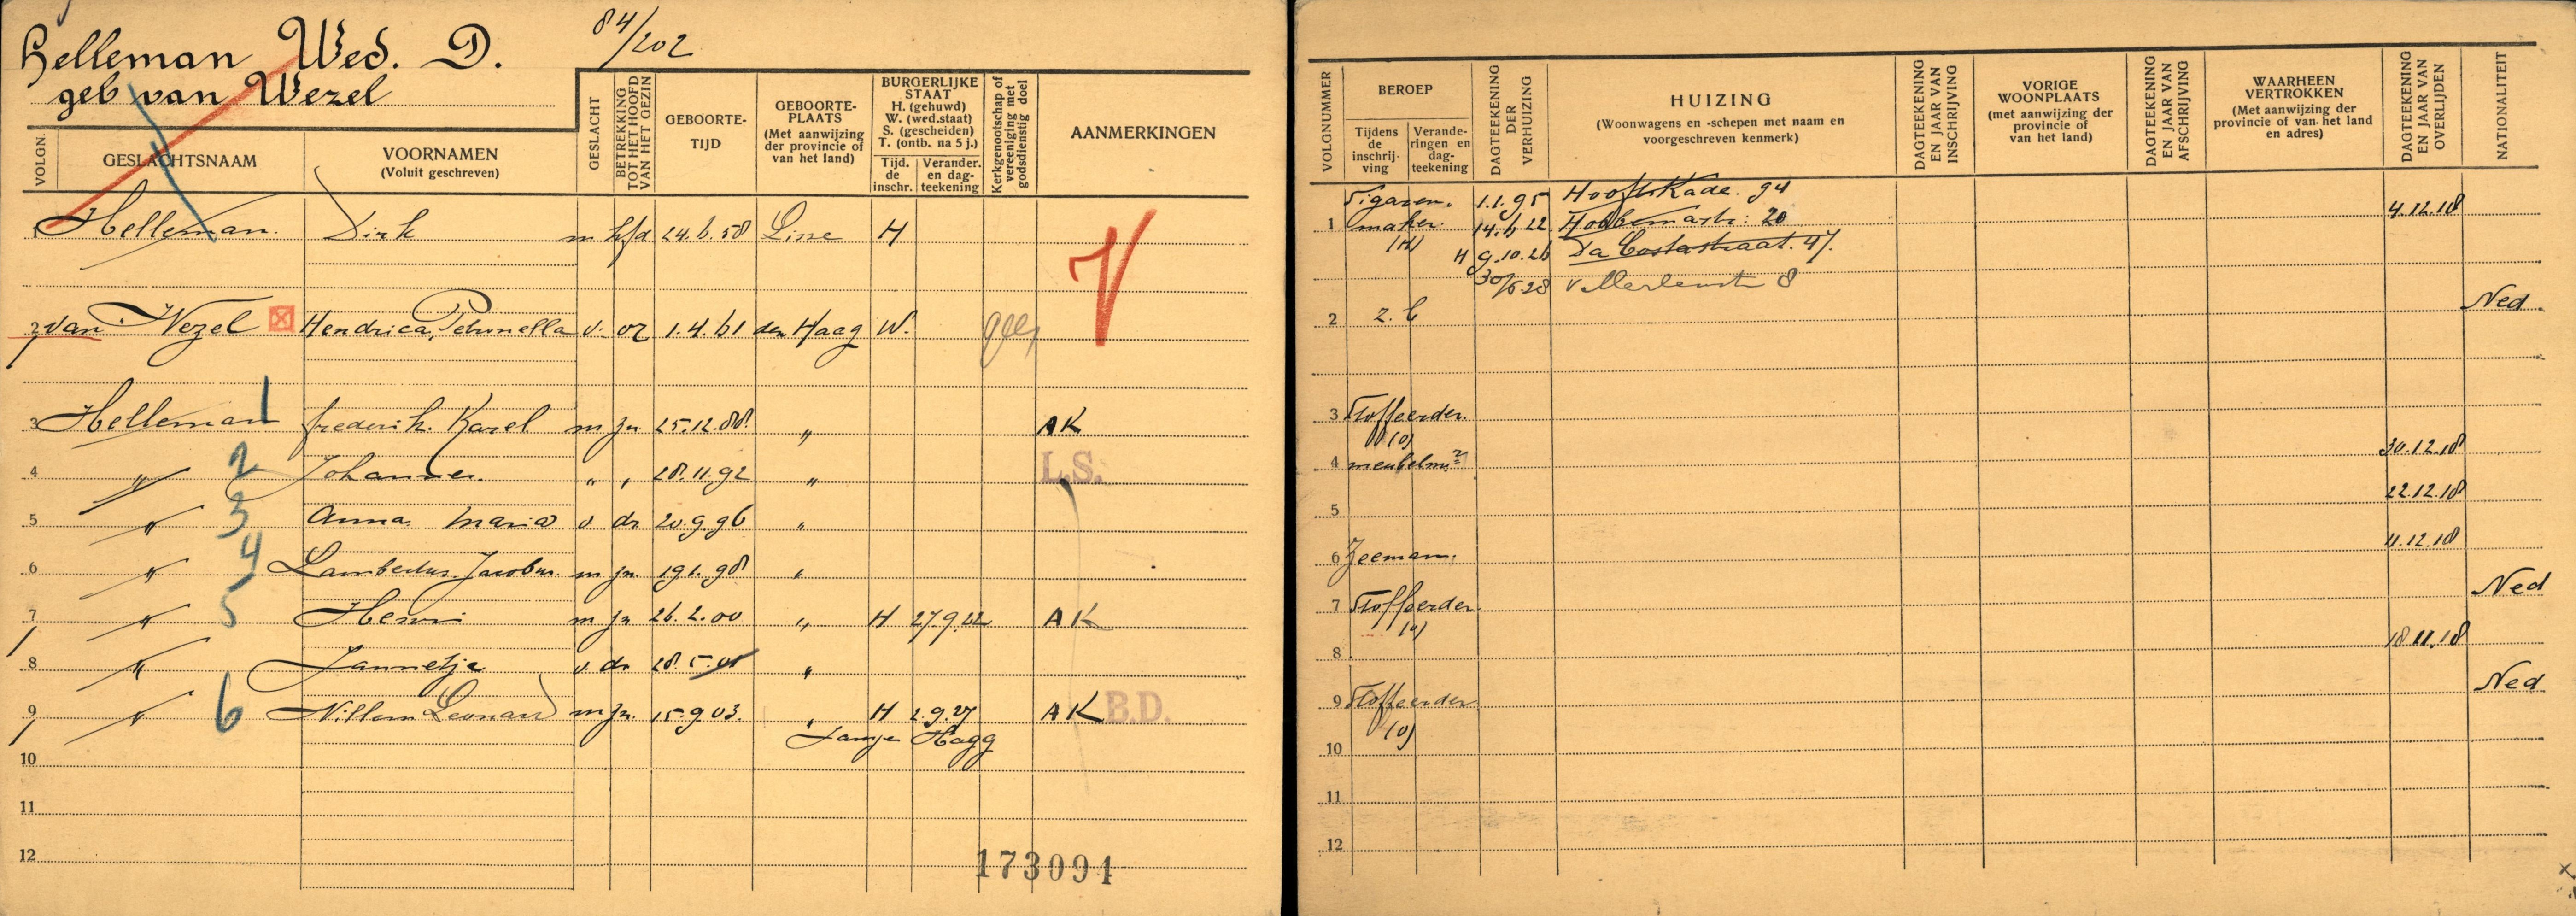 84/202
Helleman Wed. D.
geb van Wezel
VOLGN.
GESLACHTSNAAM
VOORNAMEN
(Voluit geschreven)
GESLACHT
BETREKKING
TOT HET HOOFD
VAN HET GEZIN
GEBOORTE-
TIJD
GEBOORTE-
PLAATS
(Met aanwijzing
der provincie of
van het land)
BURGERLIJKE
STAAT
H. (gehuwd)
W. (wed.staat)
S. (gescheiden)
T. (ontb. na 5 j.)
Tijd.
de
inschr.
Verander.
en dag-
teekening
Kerkgenootschap of
vereeniging met
godsdienstig doel
AANMERKINGEN
1 Helleman. Dirk m hfd 24.6.58 Lisse H
2 van Wezel Hendrica, Petronella v. or 1.4.61 den Haag W. geg
3 Helleman 1 frederik. Karel m zn 25.12.88. " AK
4 " 2 Johannes. " " 28.11.92 " L.S.
5 " 3 Anna Maria v dr 20.9.96 "
6 " 4 Lambertus Jacobus. m zn 19.1.98 "
7 " 5 Henri m zn 26.2.00 " H 27.9.22 AK
8 " Jannetje v. dr 28.5.01 "
9 " 6 Willem Leonard m zn. 15.9.03. " H 2.9.27 AK B.D.
Jansje Hagg
10
11
12
173091
VOLGNUMMER
BEROEP
Tijdens
de
inschrij-
ving
Verande-
ringen en
dag-
teekening
DAGTEEKENING
DER
VERHUIZING
HUIZING
(Woonwagens en -schepen met naam en
voorgeschreven kenmerk)
DAGTEEKENING
EN JAAR VAN
INSCHRIJVING
VORIGE
WOONPLAATS
(met aanwijzing der
provincie of
van het land)
DAGTEEKENING
EN JAAR VAN
AFSCHRIJVING
WAARHEEN
VERTROKKEN
(Met aanwijzing der
provincie of van het land
en adres)
DAGTEEKENING
EN JAAR VAN
OVERLIJDEN
NATIONALITEIT
Sigaren. 1.1.95 Hoofdkade. 94
1 maker. 14.6.22 Hobbemastr: 20 4.12.18
H 9.10.26 Da Costastraat. 47.
30/5 28 v Merlenstr 8
2 z. b Ned
3 Stoffeerder.
(o)
4 meubelm. 30.12.18
5 22.12.18
6 Zeeman. 11.12.18
7 Stoffeerder Ned
8 18.11.18
9 Stoffeerder Ned
(o)
10
11
12